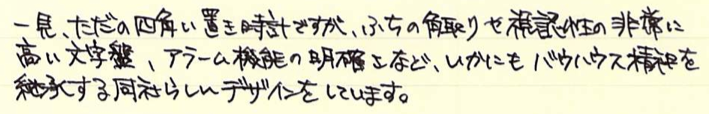 一見、ただの四角い置き時計ですが、ふちの角取りや視認性の非常に
高い文字盤、アラーム機能の明確さなど、いかにもバウハウス精神を
継承する同社らしいデザインをしています。